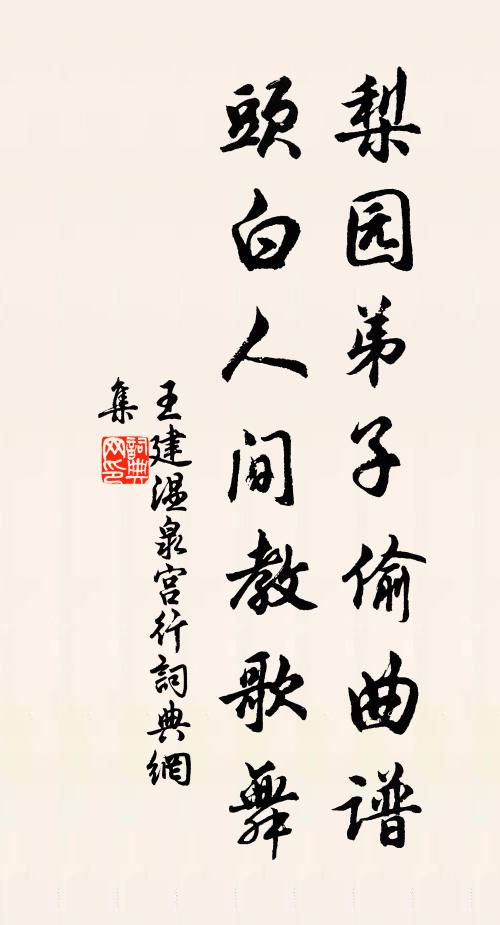 梨园弟子偷曲谱
頭白人间教歌舞
王建温泉宫行詞典網
集
詞典網印